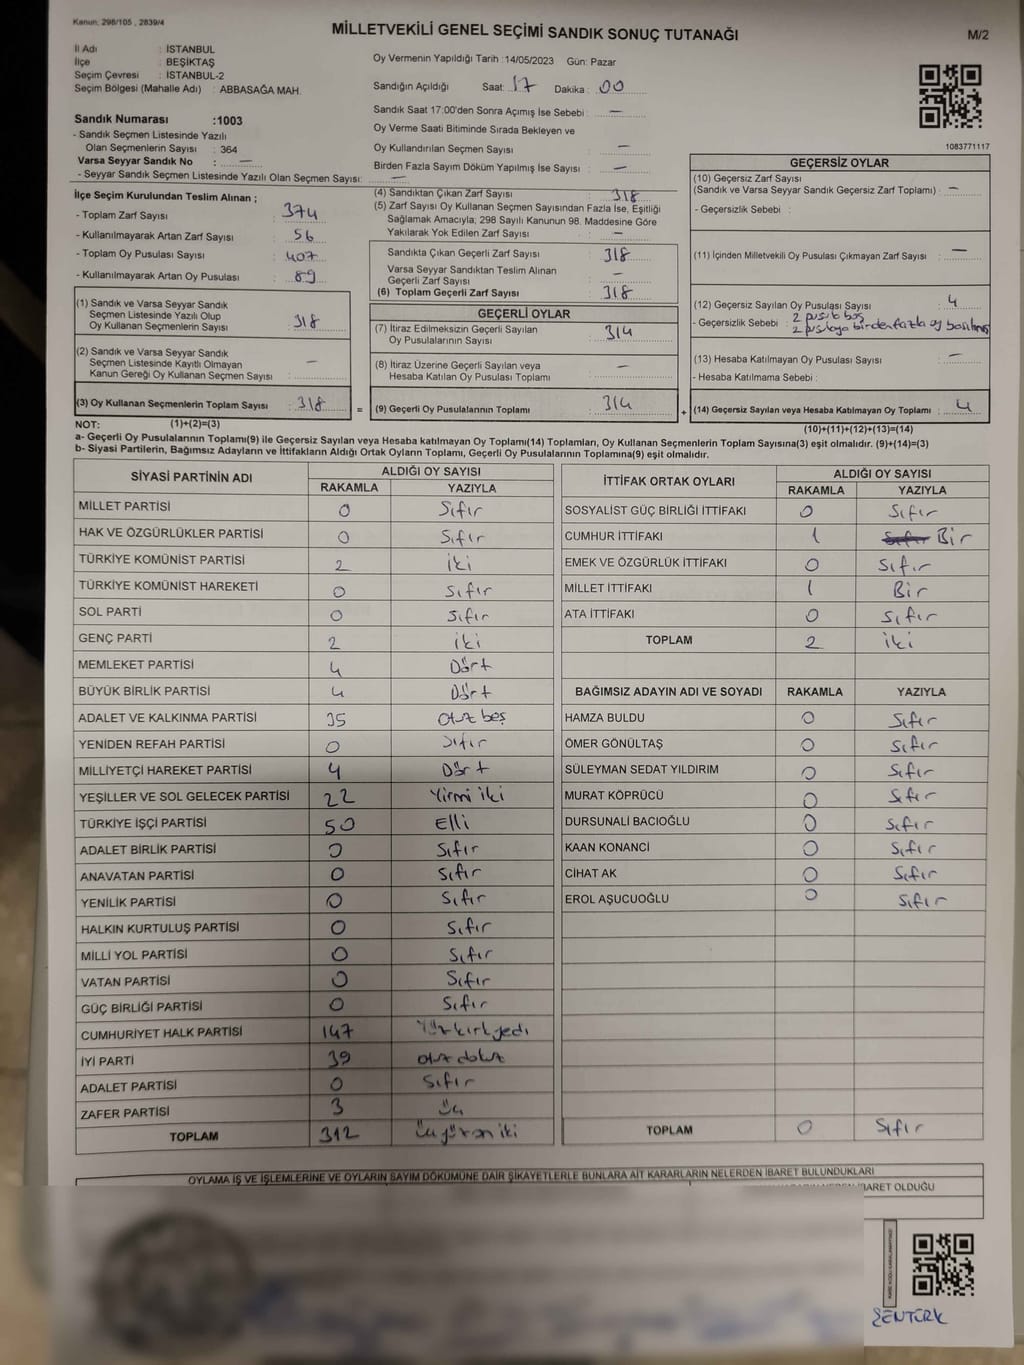 Kanun: 298/105 , 2839/4
MİLLETVEKİLİ GENEL SEÇİMİ SANDIK SONUÇ TUTANAĞI
M/2
İl Adı : İSTANBUL
İlçe : BEŞİKTAŞ
Seçim Çevresi : İSTANBUL-2
Seçim Bölgesi (Mahalle Adı) : ABBASAĞA MAH.
Sandık Numarası :1003
- Sandık Seçmen Listesinde Yazılı
Olan Seçmenlerin Sayısı : 364
Varsa Seyyar Sandık No : —
- Seyyar Sandık Seçmen Listesinde Yazılı Olan Seçmen Sayısı: —
Oy Vermenin Yapıldığı Tarih :14/05/2023 Gün: Pazar
Sandığın Açıldığı Saat: 17 Dakika : 00
Sandık Saat 17:00'den Sonra Açımış İse Sebebi : —
Oy Verme Saati Bitiminde Sırada Bekleyen ve
Oy Kullandırılan Seçmen Sayısı : —
Birden Fazla Sayım Döküm Yapılmış İse Sayısı : —
1083771117
İlçe Seçim Kurulundan Teslim Alınan ;
- Toplam Zarf Sayısı : 374
- Kullanılmayarak Artan Zarf Sayısı : 56
- Toplam Oy Pusulası Sayısı : 407
- Kullanılmayarak Artan Oy Pusulası : 89
(1) Sandık ve Varsa Seyyar Sandık
Seçmen Listesinde Yazılı Olup
Oy Kullanan Seçmenlerin Sayısı : 318
(2) Sandık ve Varsa Seyyar Sandık
Seçmen Listesinde Kayıtlı Olmayan
Kanun Gereği Oy Kullanan Seçmen Sayısı : —
(3) Oy Kullanan Seçmenlerin Toplam Sayısı : 318 =
(4) Sandıktan Çıkan Zarf Sayısı : 318
(5) Zarf Sayısı Oy Kullanan Seçmen Sayısından Fazla İse, Eşitliği
Sağlamak Amacıyla; 298 Sayılı Kanunun 98. Maddesine Göre
Yakılarak Yok Edilen Zarf Sayısı : —
Sandıkta Çıkan Geçerli Zarf Sayısı : 318
Varsa Seyyar Sandıktan Teslim Alınan
Geçerli Zarf Sayısı : —
(6) Toplam Geçerli Zarf Sayısı : 318
GEÇERLİ OYLAR
(7) İtiraz Edilmeksizin Geçerli Sayılan
Oy Pusulalarının Sayısı : 314
(8) İtiraz Üzerine Geçerli Sayılan veya
Hesaba Katılan Oy Pusulası Toplamı : —
(9) Geçerli Oy Pusulalarının Toplamı : 314 +
GEÇERSİZ OYLAR
(10) Geçersiz Zarf Sayısı
(Sandık ve Varsa Seyyar Sandık Geçersiz Zarf Toplamı) : —
- Geçersizlik Sebebi :
(11) İçinden Milletvekili Oy Pusulası Çıkmayan Zarf Sayısı : —
(12) Geçersiz Sayılan Oy Pusulası Sayısı : 4
- Geçersizlik Sebebi : 2 pusula boş
2 pusulaya birden fazla oy basılmış
(13) Hesaba Katılmayan Oy Pusulası Sayısı : —
- Hesaba Katılmama Sebebi :
(14) Geçersiz Sayılan veya Hesaba Katılmayan Oy Toplamı : 4
NOT: (1)+(2)=(3)
(10)+(11)+(12)+(13)=(14)
a- Geçerli Oy Pusulalarının Toplamı(9) ile Geçersiz Sayılan veya Hesaba katılmayan Oy Toplamı(14) Toplamları, Oy Kullanan Seçmenlerin Toplam Sayısına(3) eşit olmalıdır. (9)+(14)=(3)
b- Siyasi Partilerin, Bağımsız Adayların ve İttifakların Aldığı Ortak Oyların Toplamı, Geçerli Oy Pusulalarının Toplamına(9) eşit olmalıdır.
SİYASİ PARTİNİN ADI ALDIĞI OY SAYISI
RAKAMLA YAZIYLA
MİLLET PARTİSİ 0 Sıfır
HAK VE ÖZGÜRLÜKLER PARTİSİ 0 Sıfır
TÜRKİYE KOMÜNİST PARTİSİ 2 İki
TÜRKİYE KOMÜNİST HAREKETİ 0 Sıfır
SOL PARTİ 0 Sıfır
GENÇ PARTİ 2 İki
MEMLEKET PARTİSİ 4 Dört
BÜYÜK BİRLİK PARTİSİ 4 Dört
ADALET VE KALKINMA PARTİSİ 35 Otuz beş
YENİDEN REFAH PARTİSİ 0 Sıfır
MİLLİYETÇİ HAREKET PARTİSİ 4 Dört
YEŞİLLER VE SOL GELECEK PARTİSİ 22 Yirmi iki
TÜRKİYE İŞÇİ PARTİSİ 50 Elli
ADALET BİRLİK PARTİSİ 0 Sıfır
ANAVATAN PARTİSİ 0 Sıfır
YENİLİK PARTİSİ 0 Sıfır
HALKIN KURTULUŞ PARTİSİ 0 Sıfır
MİLLİ YOL PARTİSİ 0 Sıfır
VATAN PARTİSİ 0 Sıfır
GÜÇ BİRLİĞİ PARTİSİ 0 Sıfır
CUMHURİYET HALK PARTİSİ 147 Yüz kırk yedi
İYİ PARTİ 39 otuz dokuz
ADALET PARTİSİ 0 Sıfır
ZAFER PARTİSİ 3 üç
TOPLAM 312 üç yüz on iki
İTTİFAK ORTAK OYLARI ALDIĞI OY SAYISI
RAKAMLA YAZIYLA
SOSYALİST GÜÇ BİRLİĞİ İTTİFAKI 0 Sıfır
CUMHUR İTTİFAKI 1 Sıfır Bir
EMEK VE ÖZGÜRLÜK İTTİFAKI 0 Sıfır
MİLLET İTTİFAKI 1 Bir
ATA İTTİFAKI 0 Sıfır
TOPLAM 2 İki
BAĞIMSIZ ADAYIN ADI VE SOYADI RAKAMLA YAZIYLA
HAMZA BULDU 0 Sıfır
ÖMER GÖNÜLTAŞ 0 Sıfır
SÜLEYMAN SEDAT YILDIRIM 0 Sıfır
MURAT KÖPRÜCÜ 0 Sıfır
DURSUNALİ BACIOĞLU 0 Sıfır
KAAN KONANCİ 0 Sıfır
CİHAT AK 0 Sıfır
EROL AŞUCUOĞLU 0 Sıfır
TOPLAM 0 Sıfır
OYLAMA İŞ VE İŞLEMLERİNE VE OYLARIN SAYIM DÖKÜMÜNE DAİR ŞİKAYETLERLE BUNLARA AİT KARARLARIN NELERDEN İBARET BULUNDUKLARI
İBARET OLDUĞU
ŞENTÜRK